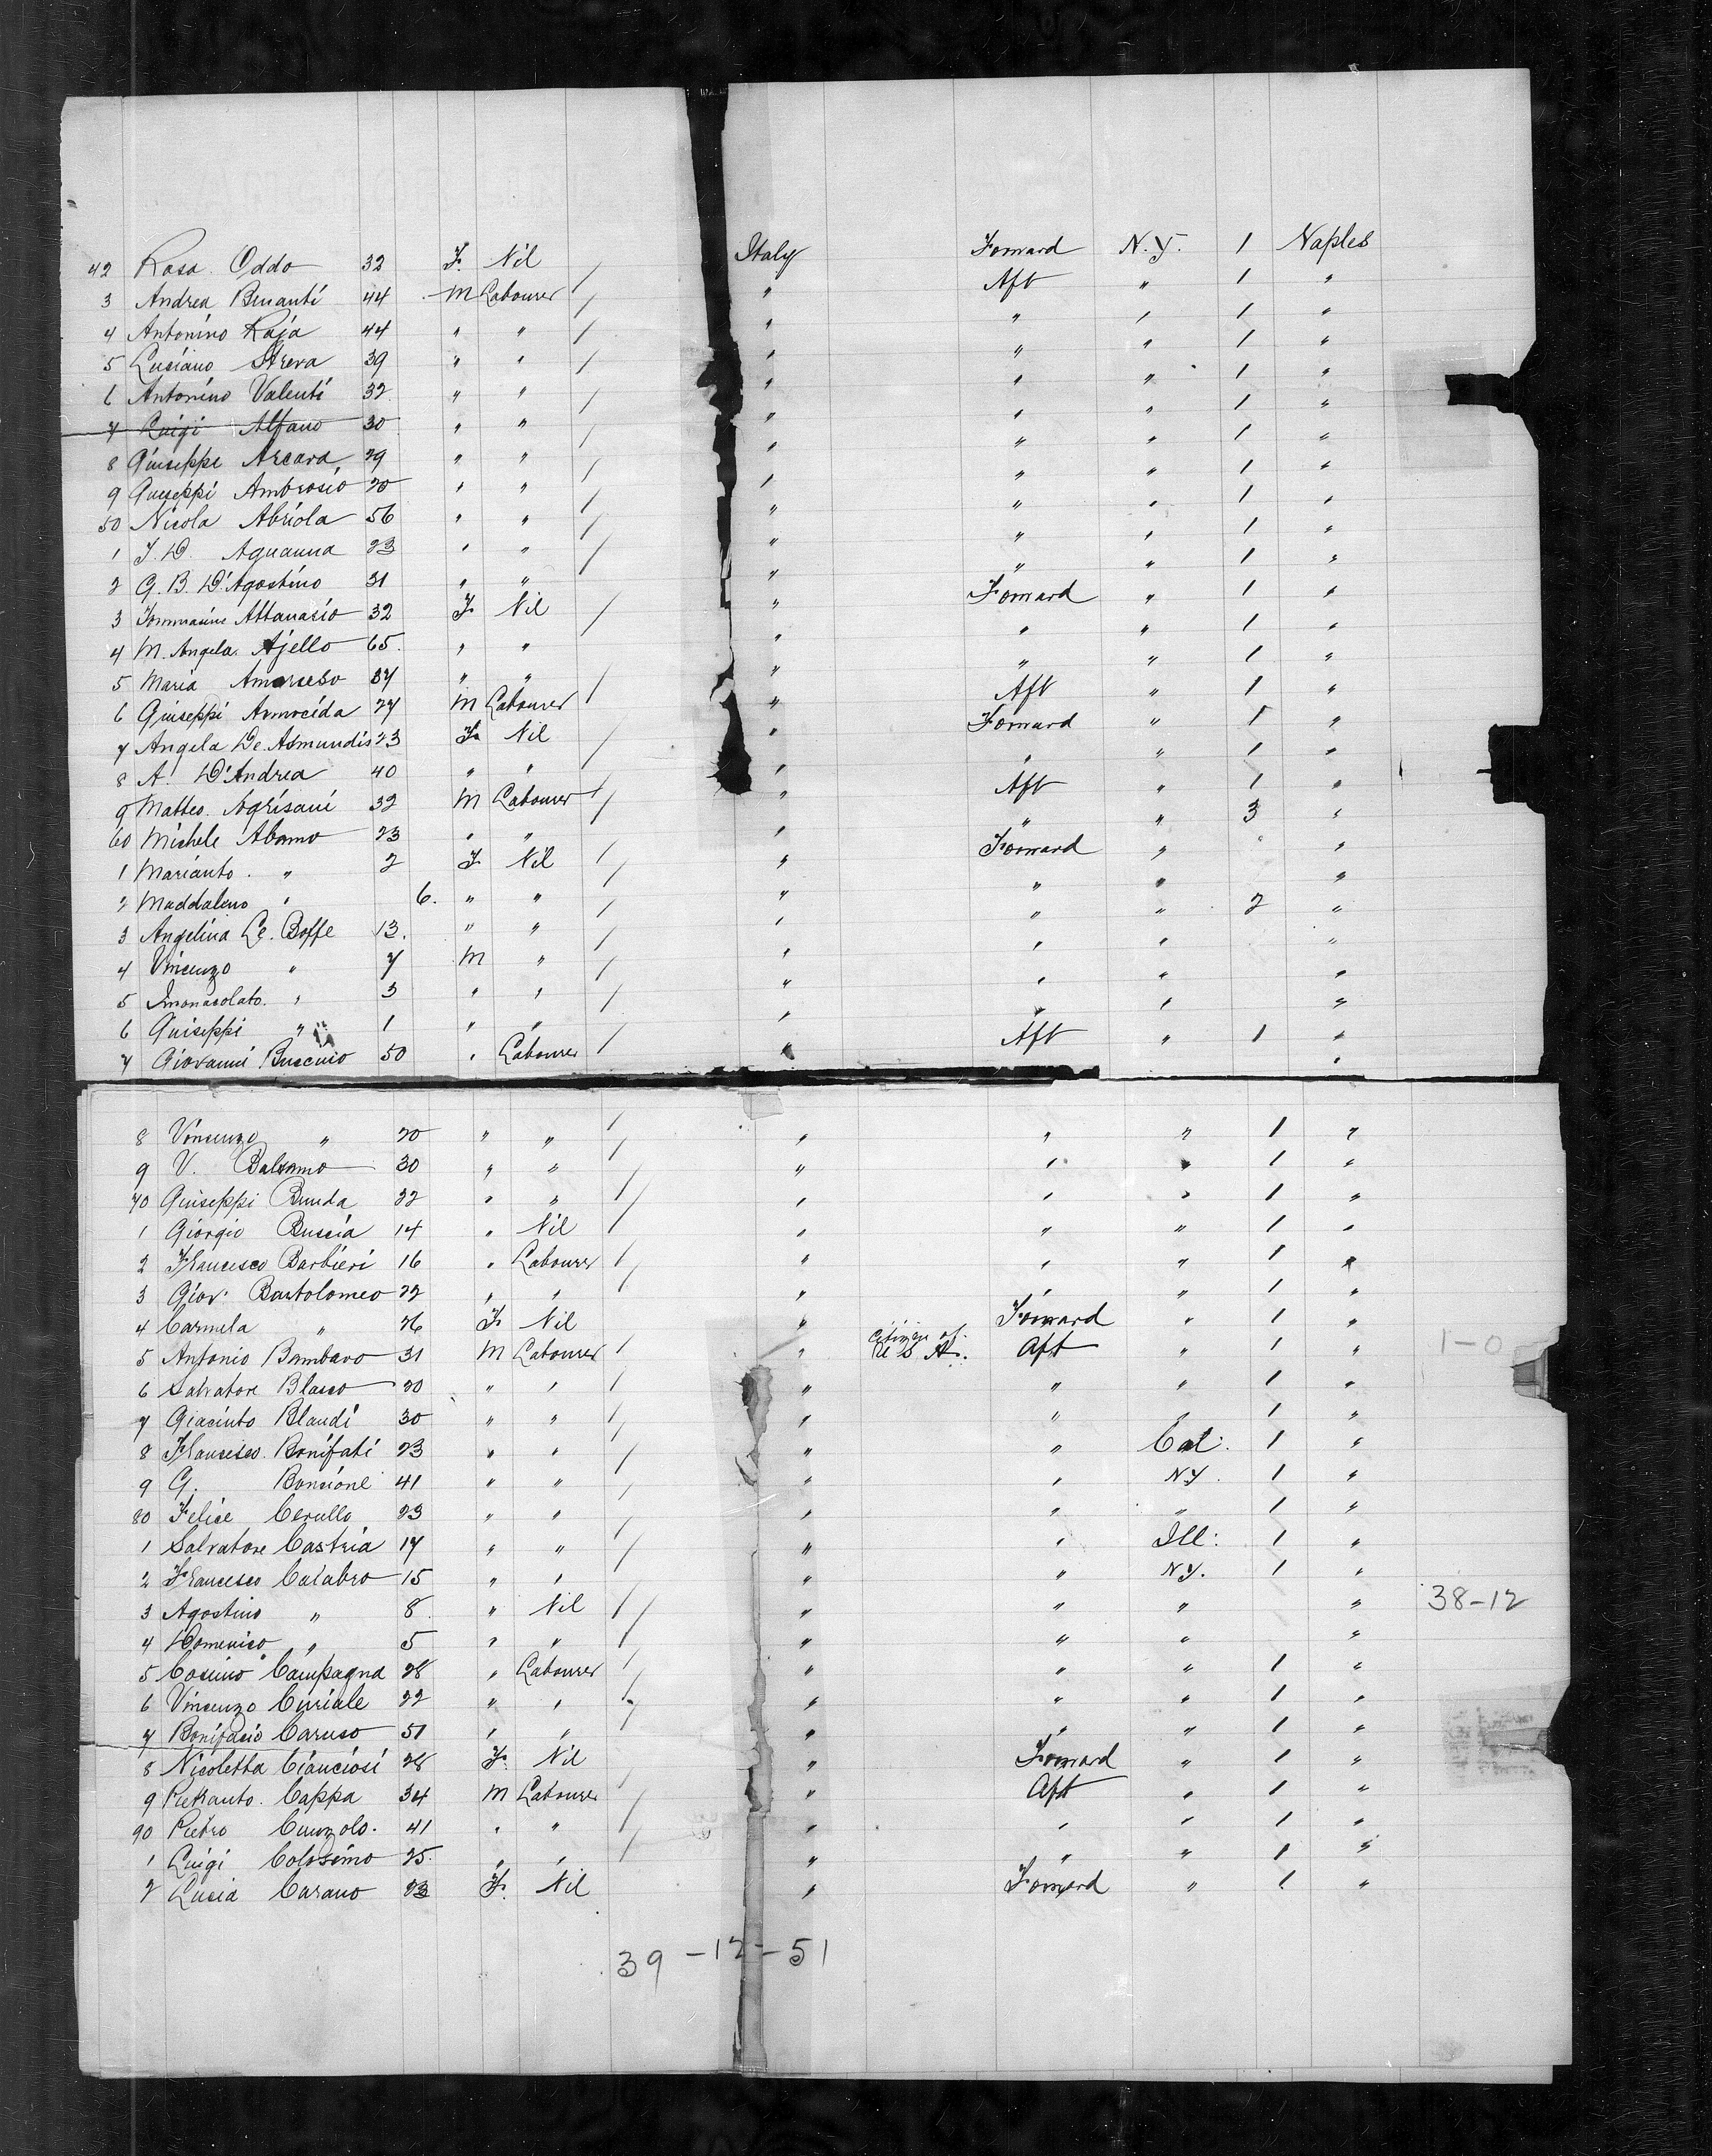 42 Rosa Oddo 32 F. Nil Italy Forward N.Y. 1 Naples
3 Andrea Binanti 44 M Labourer / " Aft " 1 "
4 Antonino Raja 44 " " / " " " 1 "
5 Luciano Streva 39 " " / " " " 1 "
6 Antonino Valenti 32 " " / " " " 1 "
7 Luigi Alfano 30 " " / " " " 1 "
8 Giuseppe Arcara 29 " " / " " " 1 "
9 Guiseppi Ambrosio 20 " " / " " " 1 "
50 Nicola Abriola 56 " " / " " " 1 "
1 F. D. Aguanna 23 " " / " " " 1 "
2 G. B. D'Agostino 31 " " / " " " 1 "
3 Attanasio 32 F Nil " Forward " 1 "
4 M. Angela Ajello 65. " " " " " 1 "
5 Maria 37 " " " " " 1 "
6 Guiseppi Armocida 27 M Labourer / " Aft " 1 "
7 Angela De Asmundis 23 F Nil " Forward " 1 "
8 A. D'Andrea 40 " " " " " 1 "
9 Matteo Agrisani 32 M Labourer / " Aft " 1 "
60 Michele Abamo 23 " " / " " " 3 "
1 Marianto. " 2 F Nil / " Forward " "
2 Maddalena " 6. " " / " " " "
3 Angelina Le Boffe 13. " " / " " " 2 "
4 Vincenzo " 7 M " / " " " "
5 " 3 " " / " " " "
6 Guiseppi " 1 " " / " " " "
7 Giovanni 50 " Labourer / " Aft " 1 "
8 Vincenzo " 20 " " / " " " 1 "
9 V. Balsamo 30 " " / " " " 1 "
70 Guiseppi Bunda 22 " " / " " " 1 "
1 Giorgio Buscia 14 " Nil / " " " 1 "
2 Francesco Barbieri 16 " Labourer / " " " 1 "
3 Giov. Bartolomeo 22 " " / " " " 1 "
4 Carmela " 26 F Nil " Forward " 1 "
5 Antonio Bambaro 31 M Labourer / " Citizen of U S A. Aft " 1 " 1-0
6 Salvatore Blasco 20 " " / " " " 1 "
7 Giacinto Blandi 30 " " / " " " 1 "
8 Francesco Bonifati 23 " " / " " Cal. 1 "
9 G. Boncione 41 " " / " " NY. 1 "
80 Felice Cerullo 23 " " / " " " 1 "
1 Salvatore Castria 17 " " / " " Ill. 1 "
2 Francesco Calabro 15 " " / " " NY. 1 "
3 Agostino " 8 " Nil / " " " " 38-12
4 Domenico " 5 " " / " " " "
5 Cosimo Campagna 28 " Labourer / " " " 1 "
6 Vincenzo Curiale 22 " " / " " " 1 "
7 Bonifacio Caruso 51 " " / " " " 1 "
8 Nicoletta Cianciosi 28 F. Nil " Forward " 1 "
9 Cappa 34 M Labourer / " Aft " 1 "
90 Pietro 41 " " / " " " 1 "
1 Luigi Colosimo 25. " " / " " " 1 "
2 Lucia Carano 23 F. Nil " Forward " 1 "
39-12-51